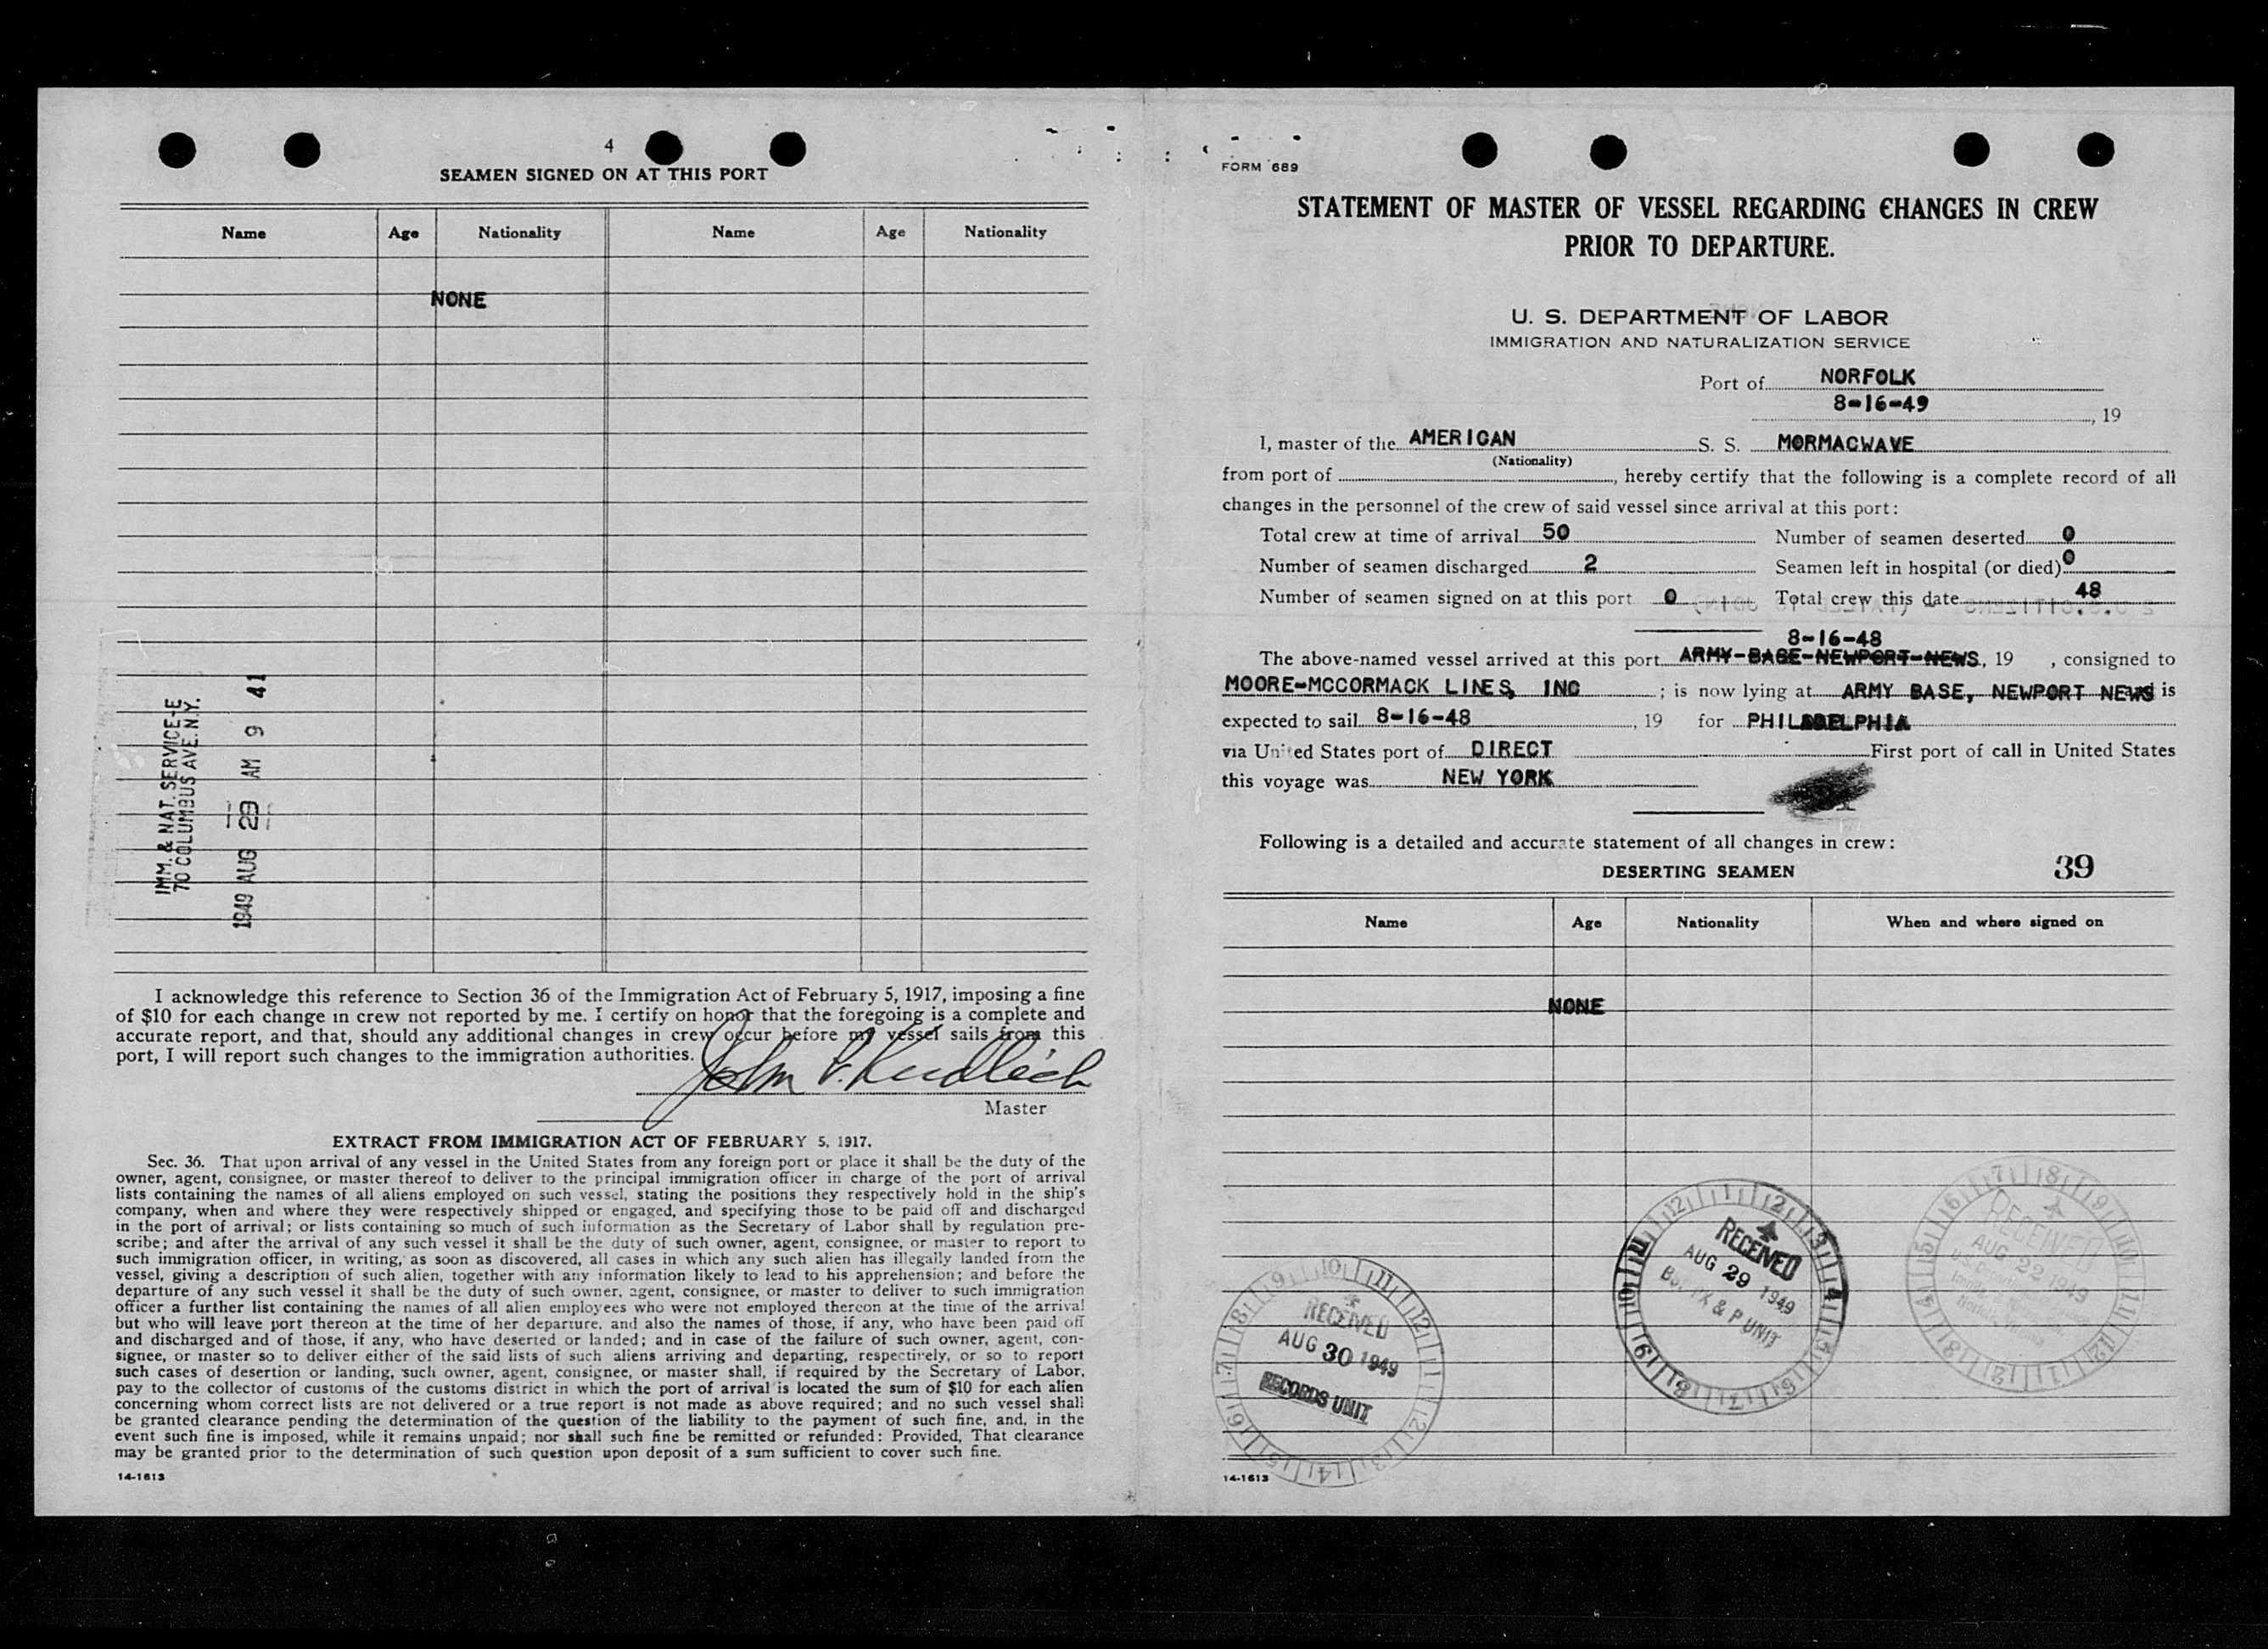 4
SEAMEN SIGNED ON AT THIS PORT
Name Age Nationality Name Age Nationality
NONE
IMM. & NAT. SERVICE-E
70 COLUMBUS AVE. N.Y.
1949 AUG 29 AM 9 41
I acknowledge this reference to Section 36 of the Immigration Act of February 5, 1917, imposing a fine
of $10 for each change in crew not reported by me. I certify on honor that the foregoing is a complete and
accurate report, and that, should any additional changes in crew occur before my vessel sails from this
port, I will report such changes to the immigration authorities.
John
Master
EXTRACT FROM IMMIGRATION ACT OF FEBRUARY 5, 1917.
Sec. 36. That upon arrival of any vessel in the United States from any foreign port or place it shall be the duty of the
owner, agent, consignee, or master thereof to deliver to the principal immigration officer in charge of the port of arrival
lists containing the names of all aliens employed on such vessel, stating the positions they respectively hold in the ship's
company, when and where they were respectively shipped or engaged, and specifying those to be paid off and discharged
in the port of arrival; or lists containing so much of such information as the Secretary of Labor shall by regulation pre-
scribe; and after the arrival of any such vessel it shall be the duty of such owner, agent, consignee, or master to report to
such immigration officer, in writing, as soon as discovered, all cases in which any such alien has illegally landed from the
vessel, giving a description of such alien, together with any information likely to lead to his apprehension; and before the
departure of any such vessel it shall be the duty of such owner, agent, consignee, or master to deliver to such immigration
officer a further list containing the names of all alien employees who were not employed thereon at the time of the arrival
but who will leave port thereon at the time of her departure, and also the names of those, if any, who have been paid off
and discharged and of those, if any, who have deserted or landed; and in case of the failure of such owner, agent, con-
signee, or master so to deliver either of the said lists of such aliens arriving and departing, respectively, or so to report
such cases of desertion or landing, such owner, agent, consignee, or master shall, if required by the Secretary of Labor,
pay to the collector of customs of the customs district in which the port of arrival is located the sum of $10 for each alien
concerning whom correct lists are not delivered or a true report is not made as above required; and no such vessel shall
be granted clearance pending the determination of the question of the liability to the payment of such fine, and, in the
event such fine is imposed, while it remains unpaid; nor shall such fine be remitted or refunded: Provided, That clearance
may be granted prior to the determination of such question upon deposit of a sum sufficient to cover such fine.
14-1613
FORM 689
STATEMENT OF MASTER OF VESSEL REGARDING CHANGES IN CREW
PRIOR TO DEPARTURE.
U. S. DEPARTMENT OF LABOR
IMMIGRATION AND NATURALIZATION SERVICE
Port of NORFOLK
8-16-49, 19
I, master of the AMERICAN S. S. MORMACWAVE
(Nationality)
from port of , hereby certify that the following is a complete record of all
changes in the personnel of the crew of said vessel since arrival at this port:
Total crew at time of arrival 50 Number of seamen deserted 0
Number of seamen discharged 2 Seamen left in hospital (or died) 0
Number of seamen signed on at this port 0 Total crew this date 48
8-16-48
The above-named vessel arrived at this port ARMY-BASE-NEWPORT-NEWS, 19 , consigned to
MOORE-MCCORMACK LINES, INC ; is now lying at ARMY BASE, NEWPORT NEWS is
expected to sail 8-16-48, 19 for PHILADELPHIA
via United States port of DIRECT First port of call in United States
this voyage was NEW YORK
Following is a detailed and accurate statement of all changes in crew:
DESERTING SEAMEN
39
Name Age Nationality When and where signed on
NONE
RECEIVED
AUG 30 1949
RECORDS UNIT
RECEIVED
AUG 29 1949
& P UNIT
RECEIVED
AUG 22 1949
14-1613